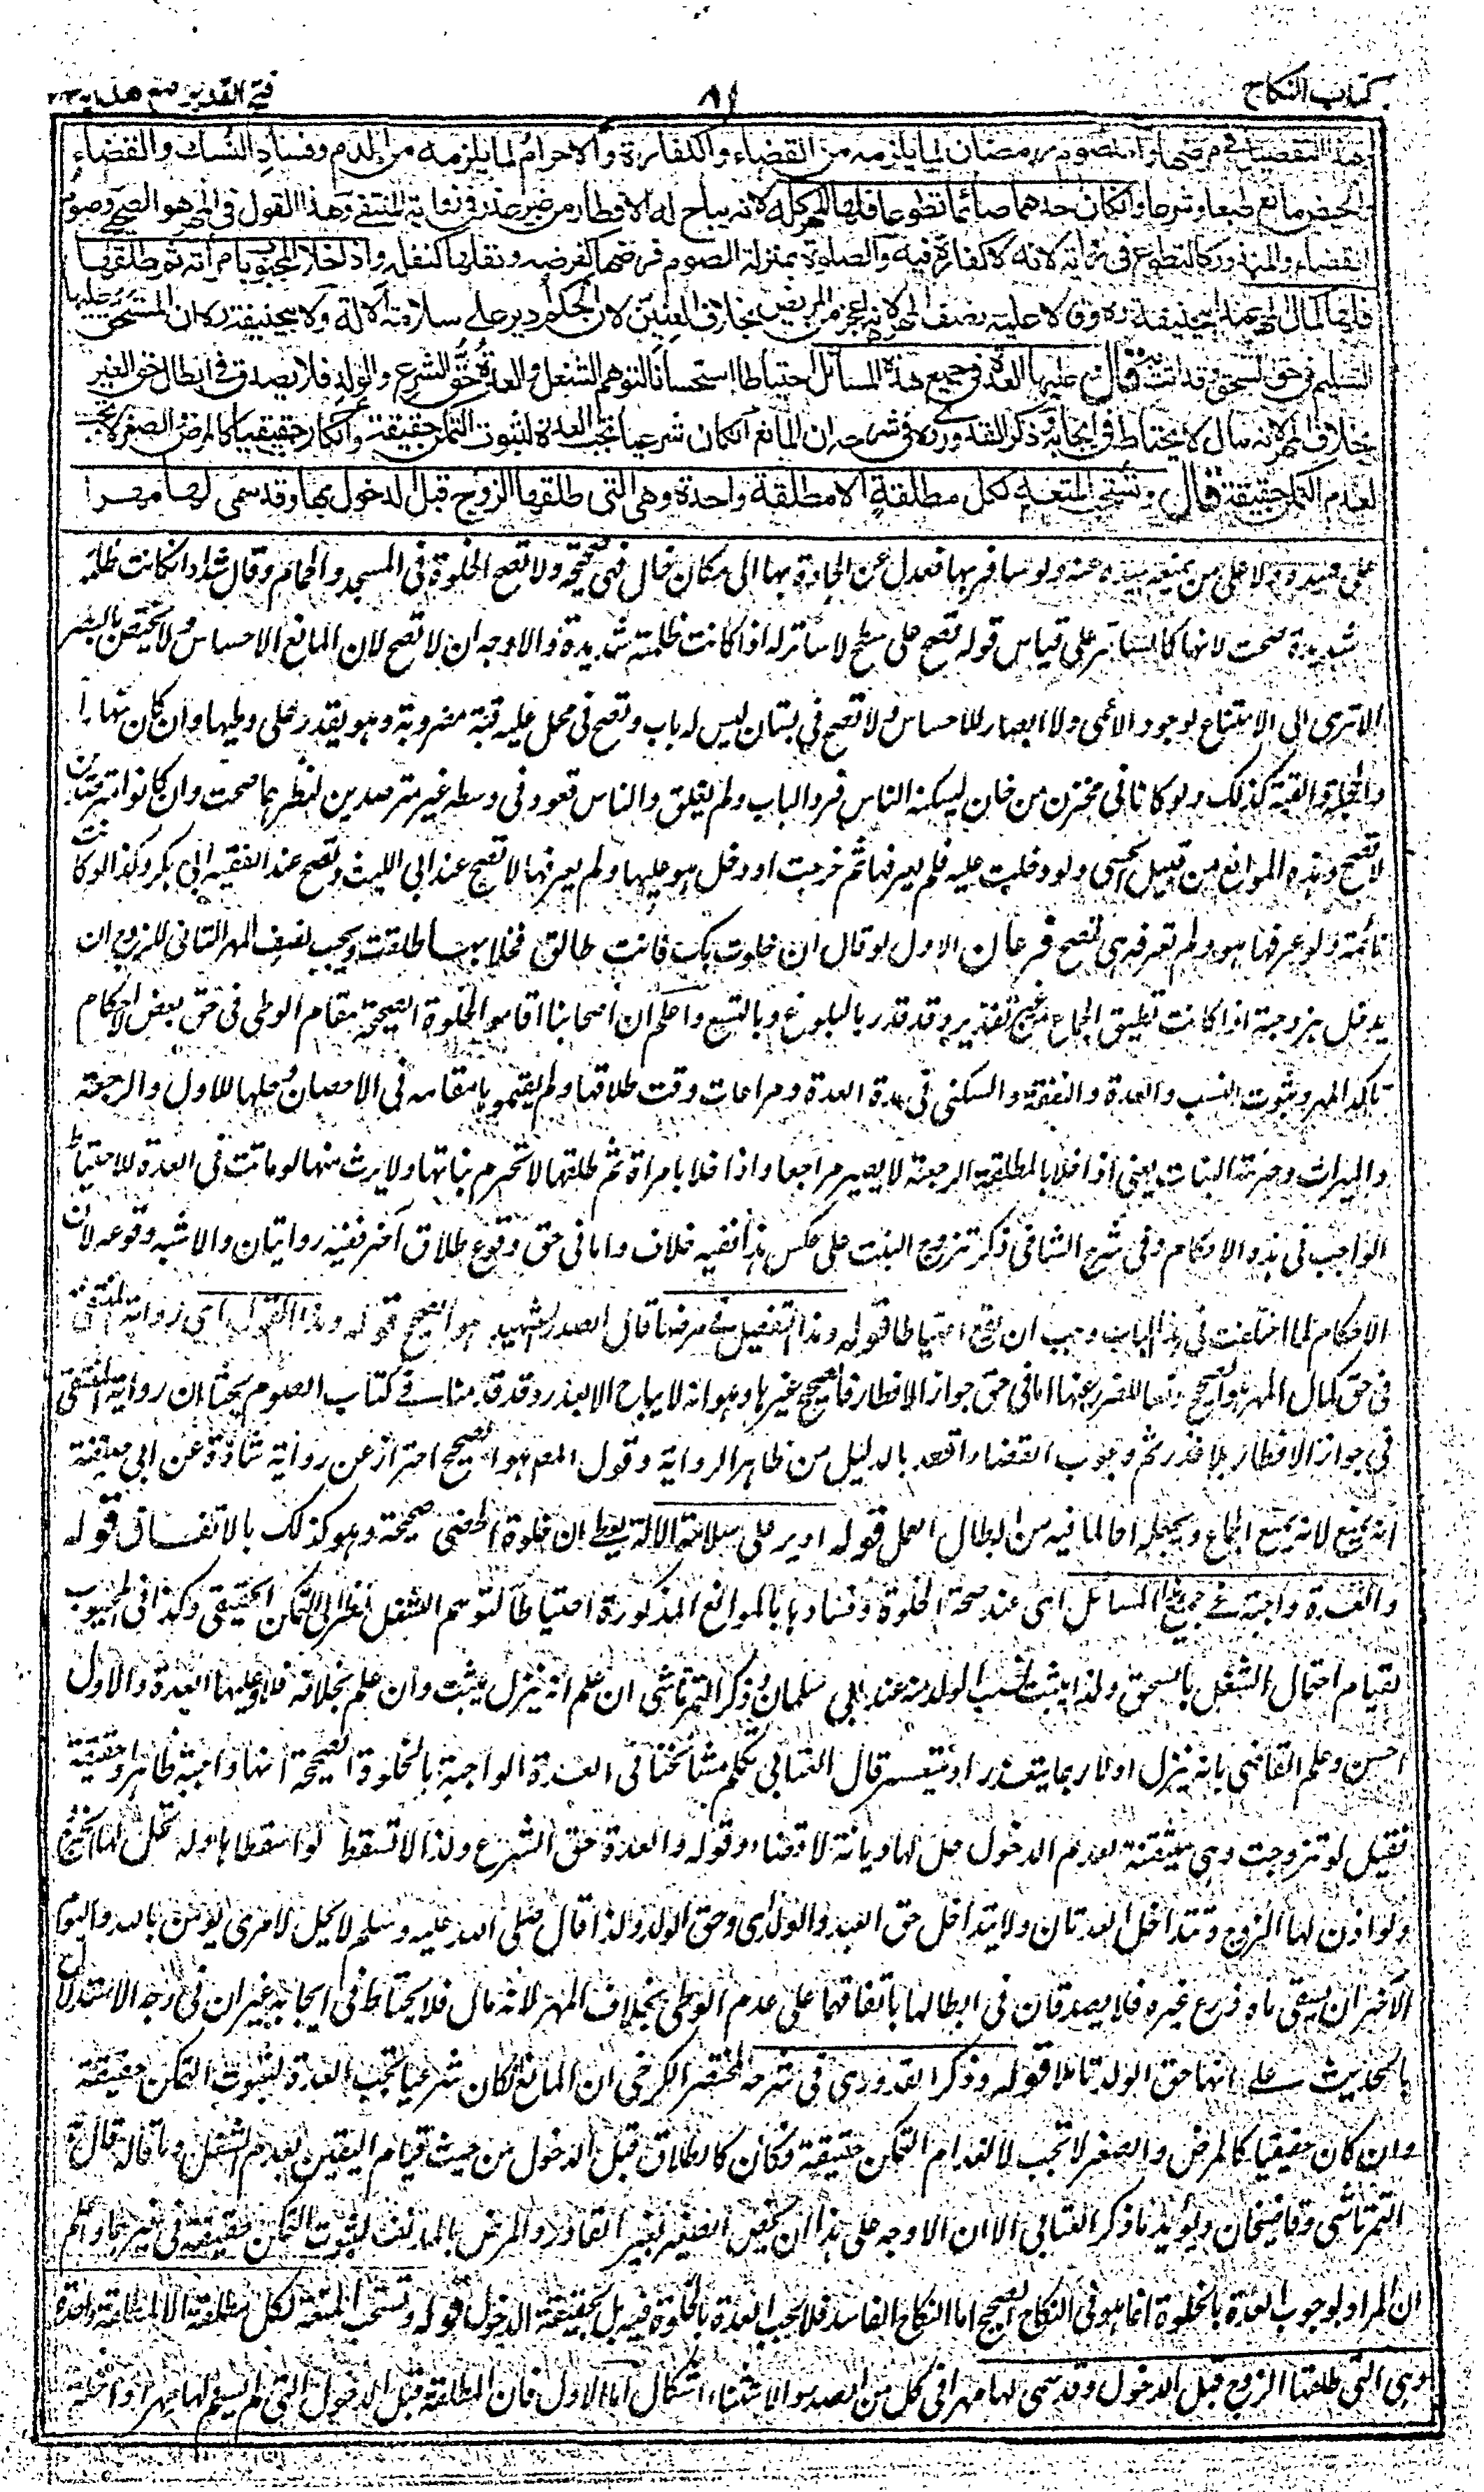 كتاب النكاح
٨١
فتح القدير مع هدايه ج٢
هذا التفصيل في مرضها وصوم رمضان لما يلزمه من القضاء والكفارة والاحرام لما يلزمه من الدم وفساد النسك والقضاء
والحيض مانع طبعا وشرعا وان كان احدهما صائما تطوعا فلها المهر كله لانه يباح له الافطار من غير عذر في رواية المنتقى وهذا القول في المهر هو الصحيح وصوم
القضاء والمنذور كالتطوع في رواية لانه لا كفارة فيه والصلوة بمنزلة الصوم فرضها كفرضه ونفلها كنفله واذا خلا المجبوب بامرأته ثم طلقها
فلها كمال المهر عند ابي حنيفة ره وقالا عليه نصف المهر لانه اعجز من المريض بخلاف العنين لان الحكم ادير على سلامة الآلة ولابي حنيفة ره ان المستحق عليها
التسليم في حق السحق وقد اتت به قال وعليها العدة في جميع هذه المسائل احتياطا استحسانا لتوهم الشغل والعدة حق الشرع والولد فلا يصدق في ابطال حق الغير
بخلاف المهر لانه مال لا يحتاط في ايجابه وذكر القدوري ره في شرحه ان المانع ان كان شرعيا تجب العدة لثبوت التمكن حقيقة وان كان حقيقيا كالمرض والصغر لا تجب
لعدم التمكن حقيقة قال وتستحب المتعة لكل مطلقة الا مطلقة واحدة وهي التي طلقها الزوج قبل الدخول بها وقد سمى لها مهرا
على ولا على من يمنعه عنه ولو سافر بها فعدل عن الجادة بها الى مكان خال فهي صحيحة ولا تصح الخلوة في المسجد والحمام وقال شداد ان كانت ظلمة
شديدة صحت لانها كالساتر على قياس قوله تصح على سطح لا ساتر له اذا كانت ظلمة شديدة والاوجه ان لا تصح لان المانع الاحساس ولا يختص بالبصر
الا ترى الى الامتناع لوجود الاعمى ولا ابصار للاحساس ولا تصح في بستان ليس له باب وتصح في محمل عليه قبة مضروبة وهو يقدر على وطيها وان كان نهارا
والحجلة والقبة كذلك ولو كانا في مخزن من خان يسكنه الناس فرد الباب ولم يغلق والناس قعود في وسطه غير مترصدين لنظرهما صحت وان كانوا مترصدين
لا تصح وهذه الموانع من قبيل الحسي ولو دخلت عليه فلم يعرفها ثم خرجت او دخل هو عليها ولم يعرفها لا تصح عند ابي الليث وتصح عند الفقيه ابي بكر وكذا لو كانت
نائمة ولو عرفها هو ولم تعرفه هي تصح فرعان الاول لو قال ان خلوت بك فانت طالق فخلا بها طلقت ويجب نصف المهر الثاني للزوج ان
يدخل بزوجته اذا كانت تطيق الجماع من غير تقدير وقد قدر بالبلوغ وبالتسع واعلم ان اصحابنا اقاموا الخلوة الصحيحة مقام الوطي في حق بعض الاحكام
تاكد المهر وثبوت النسب والعدة والنفقة والسكنى في مدة العدة ومراعات وقت طلاقها ولم يقيموها مقامه في الاحصان وحلها للاول والرجعة
والميراث وحرمة البنات يعني اذا خلا بالمطلقة الرجعية لا يصير مراجعا واذا خلا بامرأة ثم طلقها لا تحرم بناتها ولا يرث منها لو ماتت في العدة للاحتياط
الواجب في هذه الاحكام وفي شرح الشافي ذكر تزوج البنت على عكس هذا ففيه خلاف واما في حق وقوع طلاق آخر ففيه روايتان والاشبه وقوعه لان
الاحكام لما اختلفت في هذا الباب وجب ان تقع احتياطا قوله وهذا التفصيل في مرضها قال الصدر الشهيد هو الصحيح قوله وهذا القول اي رواية المنتقى
في حق كمال المهر هو الصحيح دفعا للضرر عنها اما في حق جواز الافطار فالصحيح غيرها وهو انه لا يباح الا بعذر وقد قدمنا في كتاب الصوم بحثا ان رواية المنتقى
في جواز الافطار بلا عذر ثم وجوب القضاء اقعد بالدليل من ظاهر الرواية وقول المص هو الصحيح احتراز عن رواية شاذة عن ابي حنيفة
انه يمنع لانه يمنع الجماع ويجعله آثما لما فيه من ابطال العمل قوله ادير على سلامة الآلة يعطي ان خلوة الخصي صحيحة وهو كذلك بالاتفاق قوله
والعدة واجبة في جميع المسائل اي عند صحة الخلوة وفسادها بالموانع المذكورة احتياطا لتوهم الشغل نظرا الى التمكن الحقيقي وكذا في المجبوب
لقيام احتمال الشغل بالسحق ولذا يثبت نسب الولد منه عند ابي سلمان وذكر التمرتاشي ان علم انه ينزل يثبت وان علم بخلافه فلا وعليها العدة والاول
احسن وعلم القاضي بانه ينزل اولا ربما يتعذر او يتعسر قال العتابي تكلم مشائخنا في العدة الواجبة بالخلوة الصحيحة انها واجبة ظاهرا وحقيقة
فقيل لو تزوجت وهي متيقنة بعدم الدخول حل لها ديانة لا قضاء وقوله والعدة حق الشرع ولذا لا تسقط لو اسقطاها ولا تحل لها الخروج
ولو اذن لها الزوج وتتداخل العدتان ولا يتداخل حق العبد والولد اي وحق الولد ولذا قال صلى الله عليه وسلم لا يحل لامرئ يؤمن بالله واليوم
الآخر ان يسقي ماءه زرع غيره فلا يصدقان في ابطالها باتفاقهما على عدم الوطي بخلاف المهر لانه مال فلا يحتاط في ايجابه غير ان في وجه الاستدلال
بالحديث على انها حق الولد تاملا قوله وذكر القدوري في شرحه لمختصر الكرخي ان المانع ان كان شرعيا تجب العدة لثبوت التمكن حقيقة
وان كان حقيقيا كالمرض والصغر لا تجب لانعدام التمكن حقيقة فكان كالطلاق قبل الدخول من حيث قيام اليقين بعدم الشغل وما قاله قال به
التمرتاشي وقاضيخان ويؤيده ما ذكر العتابي الا ان الاوجه على هذا ان يخص الصغير بغير القادر والمرض بالمدنف لثبوت التمكن حقيقة في غيرهما واعلم
ان المراد بوجوب العدة بالخلوة انما هو في النكاح الصحيح اما النكاح الفاسد فلا تجب العدة بالخلوة فيه بل بحقيقة الدخول قوله وتستحب المتعة لكل مطلقة الا لمطلقة واحدة
وهي التي طلقها الزوج قبل الدخول وقد سمى لها مهرا في كل من الصدر والاستثناء اشكال اما الاول فان المطلقة قبل الدخول التي لم يسم لها مهرا داخلة